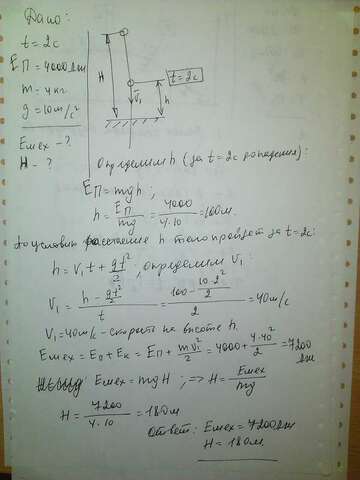 Дано:
t = 2с
Eп = 4000 Дж
m = 4 кг.
g = 10 м/с²
Eмех - ?
H - ?
H
t = 2c
V₁
h
Определим h (за t = 2с падения):
Eп = mgh ;
h = Eп/mg = 4000/4·10 = 100м.
По условию расстояние h тело пройдет за t = 2с:
h = V₁t + gt²/2 , определим V₁:
V₁ = (h - gt²/2)/t = (100 - 10·2²/2)/2 = 40м/с
V₁ = 40м/с - скорость на высоте h.
Eмех = Eп + Eк = Eп + mV₁²/2 = 4000 + 4·40²/2 = 7200 Дж
Eмех = mgH ; => H = Eмех/mg
H = 7200/4·10 = 180м
Ответ: Eмех = 7200Дж
H = 180м.